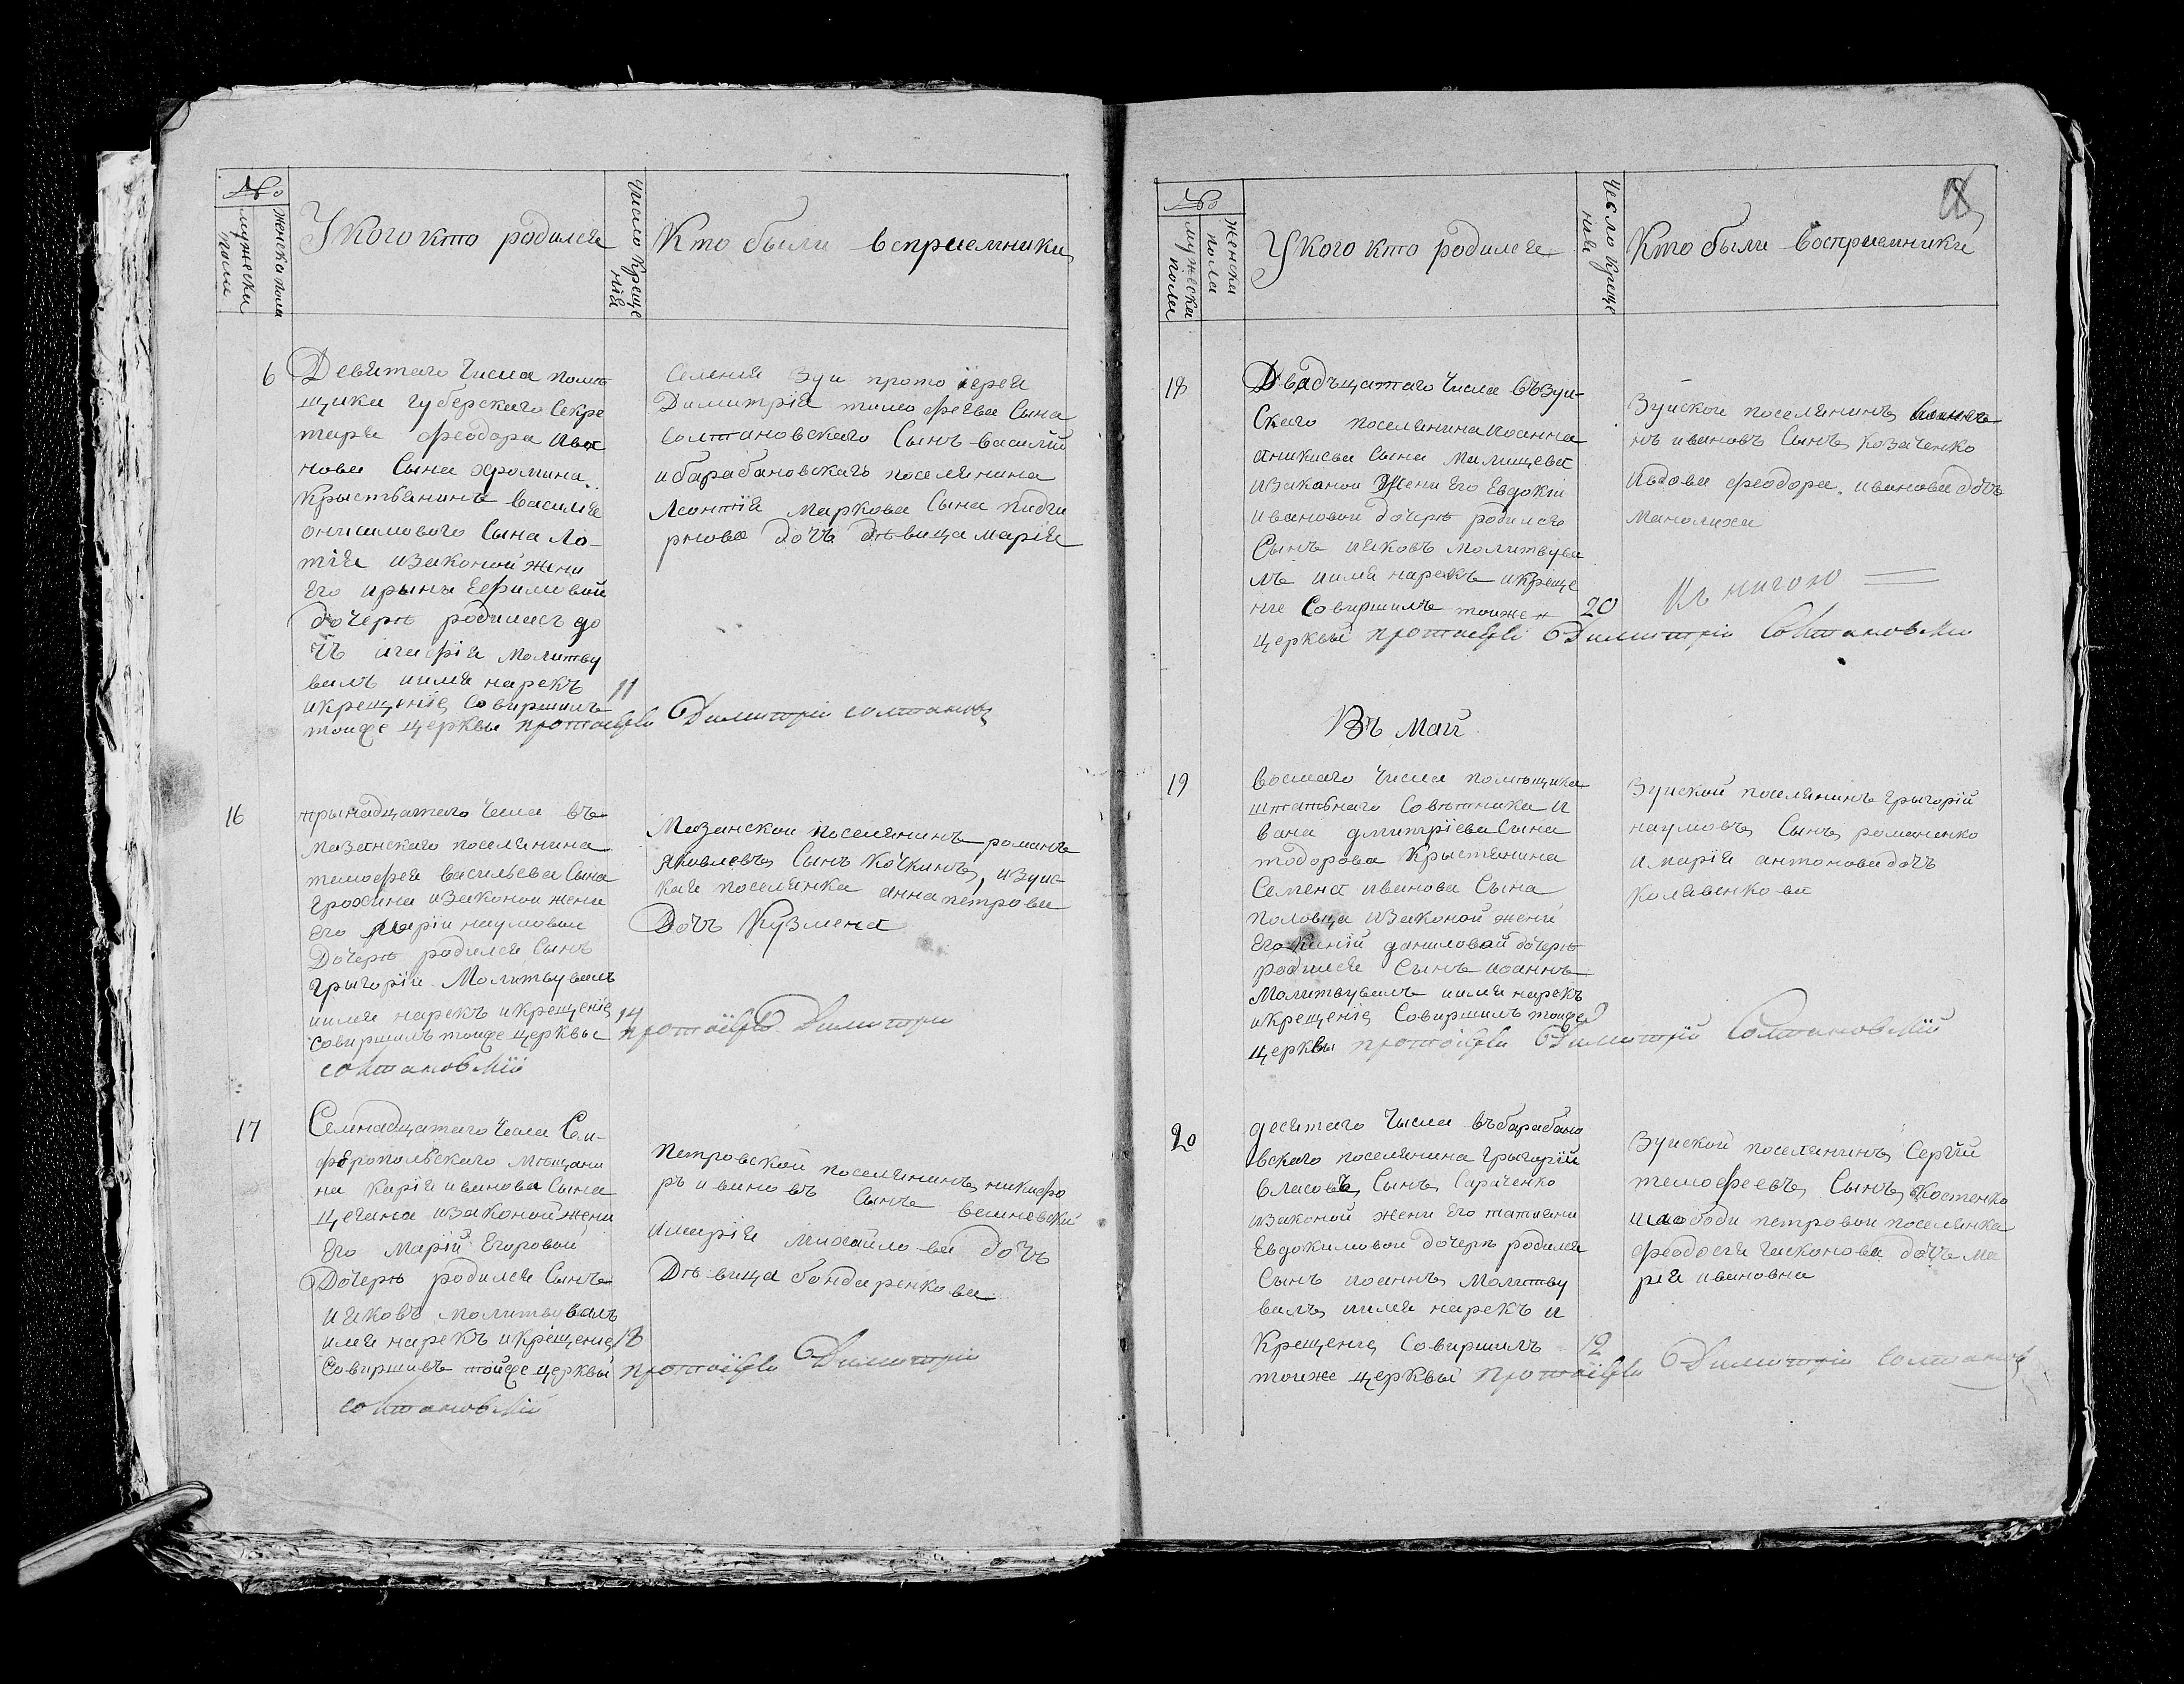 №
мужеска пола
женска пола
У кого кто родился
число креще
нія
Кто были всприемники
6
Девятаго числа помѣ
щика губерскаго Секре
таря феодора ива
нова Сына
Крыстьянина василия
онисимового Сына Ло
тія изаконой жени
Его ирыны Ефимовой
дочерѣ родилась до
чъ Молитву
валъ иимя нарекъ
икрещеніе Совиршилъ
11
тойже церквы протоіерей Димитрій
Селения Зуи протоіерея
Димитрія тимофеева Сына
Солтановскаго Сынъ василій
ибарабановскаго поселянина
Леонтія Маркова Сына
дочъ дѣвица марія
16
трынадцатаго числа въ
мазанскаго поселянина
тимофея васильева Сына
Ерохина изаконой жени
Его марии наумовой
Дочерѣ родился Сынъ
Григорій Молитвувалъ
иимя нарекъ икрещеніе
14
Совиршилъ тойже церквы протоіерей Димитрій
Солтановскій
Мазанской поселянинъ романъ
яковлевъ Сынъ Кочкинъ, изуис
кая поселянка анна петрова
Дочъ Кузмена
17
Семнадцатаго числа Сим
феропольскаго мѣщани
на Карія иванова Сына
цегана изаконой жени
Его Марий Егоровой
Дочерѣ родился Сынъ
ияковъ молитвувалъ
имя нарекъ икрещеніе
18
Совиршивъ тойже церквы протоіерей Димитрій
Солтановскій
Петровской поселянинъ никифо
ръ ивановъ Сынъ
имарія михайлова дочъ
Дѣвица бондаренкова
№
мужеска пола
женска пола
У кого кто родился
Число креще
нии
Кто были восприемники
18
Двадъцатаго числа въ Зуи
Скаго поселянина иоанна
аникиева Сына Малищева
изаконой Жени Его Евдокіи
ивановой дочерѣ родился
Сынъ ияковъ молитвува
лъ иимя нарекъ икреще
ние Совиршилъ тоиже
20
церквы протоіерей Димитрій Солтановскій
Зуиской поселянинъ
нъ ивановъ Сынъ козаченко
ивдова феодора иванова дочъ
Манолиха
Въ май
19
восмаго числа помѣщика
штатьнаго Совѣтника и
вана дмитріева Сина
тодорова Крыстянина
Семена иванова Сына
половца изаконой жени
Его даниловой дочерѣ
родился Сынъ иоаннъ
Молитвувалъ иимя нарекъ
икрещение Совиршилъ тоиже
церквы протоіерей Димитрій Солтановскій
Зуиской поселянинъ Григорій
наумовъ Сынъ романенко
имарія антонова дочъ
Колявенкова
20
десятаго Числа въ барабано
вскаго поселянина Григорій
власовъ Сынъ Сараченко
изаконой жени Его татияни
Евдокимовой дочерѣ родился
Сынъ иоаннъ Молитву
валъ иимя нарекъ и
Крещение Совиршилъ
12
тоиже церквы протоіерей Димитрій
Зуиской поселянинъ Сергій
тимофеевъ Сынъ Костенко
ислободи петровой поселянка
феодосия дочъ ма
рия ивановна